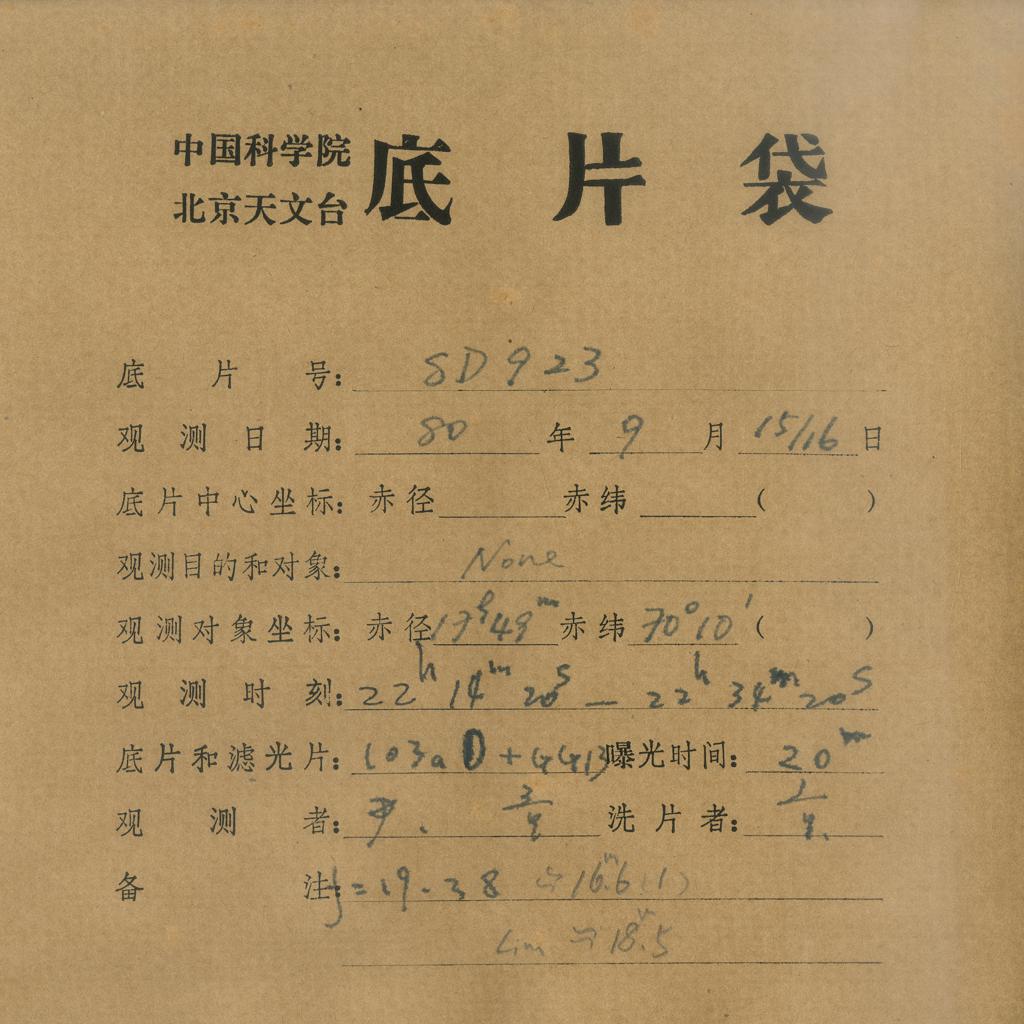 中国科学院
北京天文台
底片袋
底片号: SD923
观测日期: 80 年 9 月 15/16 日
底片中心坐标: 赤径 赤纬 ( )
观测目的和对象: None
观测对象坐标: 赤径 17h49m 赤纬 70°10′ ( )
观测时刻: 22h 14m 20s — 22h 34m 20s
底片和滤光片: 103aD + 曝光时间: 20m
观测者: 洗片者:
备注: f=19.38 ≈16.6(1)
Lim ≈ 18.5